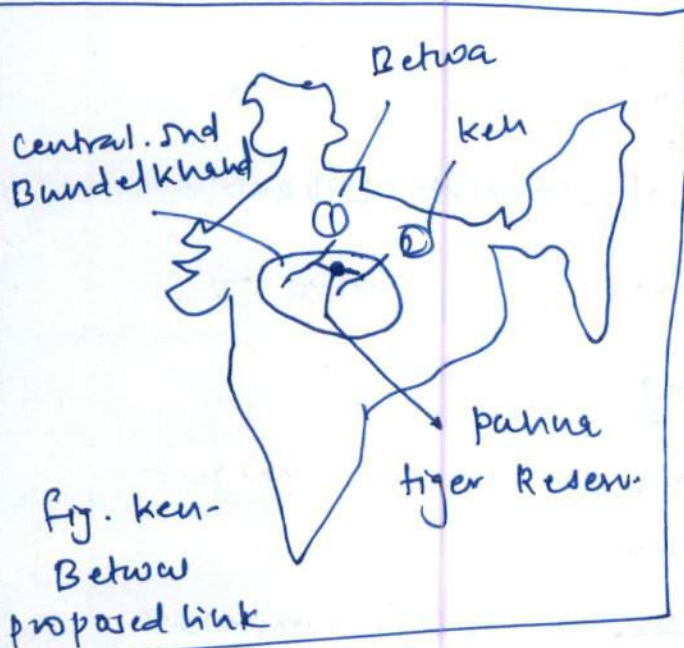 Betwa
Ken
Central. Ind
Bundelkhand
①
②
panna
tiger Reserv.
fig. Ken-
Betwa
proposed link